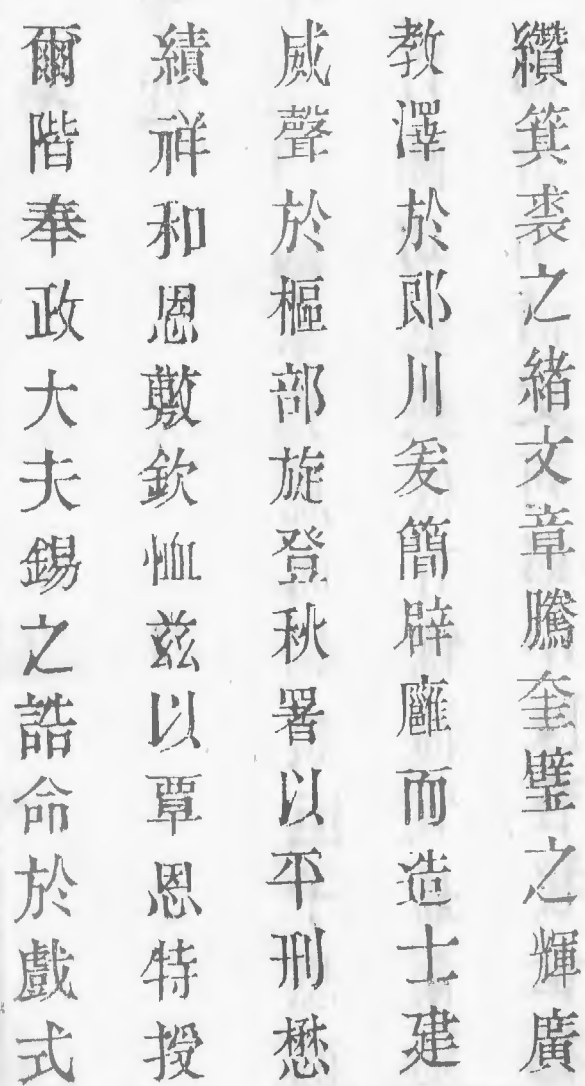 纘箕裘之緒文章騰奎璧之輝廣
教澤於郎川爰簡辟廱而造士建
威聲於樞部旋登秋署以平刑懋
績祥和恩敷欽恤茲以覃恩特授
爾階奉政大夫錫之誥命於戲式